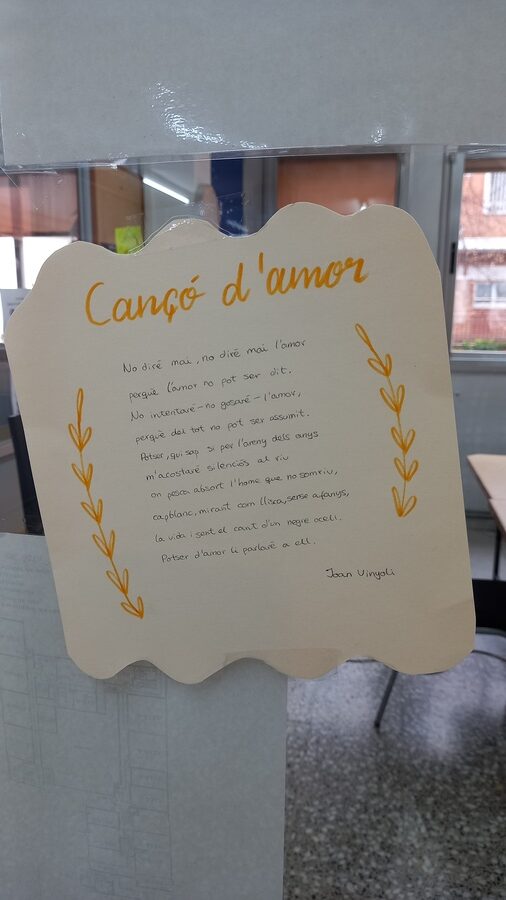 Cançó d'amor
No diré mai, no diré mai l'amor
perquè l'amor no pot ser dit.
No intentaré-no gosaré-l'amor,
perquè del tot no pot ser assumit.
Potser, qui sap si per l'areny dels anys
m'acostaré silenciós al riu
on pesca absort l'home que no somriu,
capblanc, mirant com llisca, sense afanys,
la vida i sent el cant d'un negre ocell.
Potser d'amor li parlaré a ell.
Joan Vinyoli